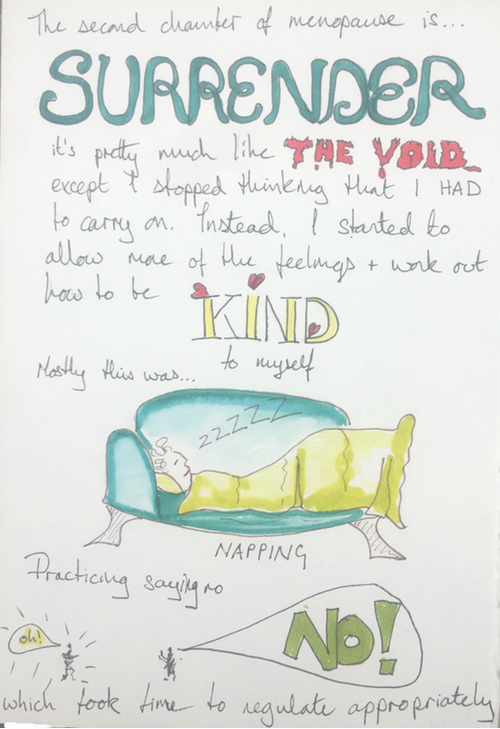 The second chamber of menopause is...
SURRENDER
it's pretty much like THE VOID
except I stopped thinking that I HAD
to carry on. Instead, I started to
allow more of the feelings + work out
how to be
KIND
to myself
Mostly this was...
zzzzz
NAPPING
Practicing saying no
oh!
NO!
which took time to regulate appropriately